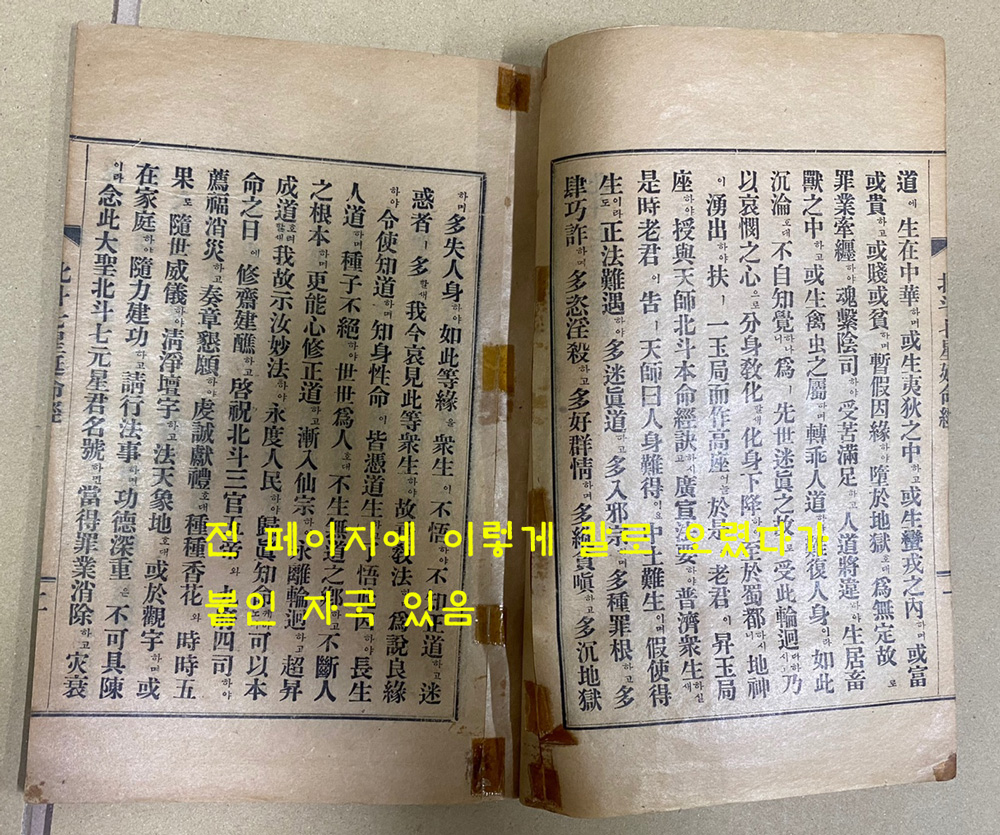 道에 生在中華하며 或生夷狄之中하고 或生蠻戎之內하며 或富
或貴하고 或賤或貧하며 暫假因緣하야 墮於地獄호대 爲無定故로
罪業牽纏하야 魂繫陰司하야 受苦滿足하고 人道將違하야 生居畜
獸之中하고 或生禽虫之屬하며 轉乖人道하야 難復人身이라 如此
沉淪호대 不自知覺하나니 爲ㅣ 先世迷眞之故로 受此輪廻 乃
以哀憫之心으로 分身敎化할새 化身下降하 至於蜀都하시니 地神
이 湧出하야 扶ㅣ 一玉局而作高座어늘 於 老君이 昇玉局
座하야 授與天師北斗本命經訣하시고 廣宣法 普濟衆生하실새
是時老君이 告ㅣ 天師曰人身難得이오 中土難生이며 假使得
生이라도 正法難遇하야 多迷眞道하고 多入邪 多種罪根하고 多
肆巧詐하며 多恣淫殺하고 多好群情하며 多縱貪嗔하고 多沉地獄
北斗七星
하며 多失人身하야 如此等緣을 衆生이 不悟하야 不知正道하고 迷
惑者ㅣ 多할새 我今哀見此等衆生하야 故 敎法하 爲說良緣
하야 令使知道하며 知身性命이 皆憑道生 悟 長生
人道하며 種子不絕하야 世世爲人호대 不生 之鄕하고 不斷人
之根本하며 更能心修正道하고 漸入仙宗하 永離輪迴하고 超昇
成道할새 我故示汝妙法하야 永度人民하야 歸眞知 可以本
命之日에 修齋建醮하고 啓祝北斗三官 와 四司하야
薦福消災하고 奏章懇願하야 虔誠獻禮호대 種種香花와 時時五
果로 隨世威儀하야 淸淨壇宇하고 法天象地호대 或於觀宇하며 或
在家庭하야 隨力建功하고 請行法事하며 功德深重은 不可具陳
이라 念此大聖北斗七元星君名號하면 當得罪業消除하고 灾衰
전 페이지에 이렇게 칼로 오렸다가
붙인 자국 있음